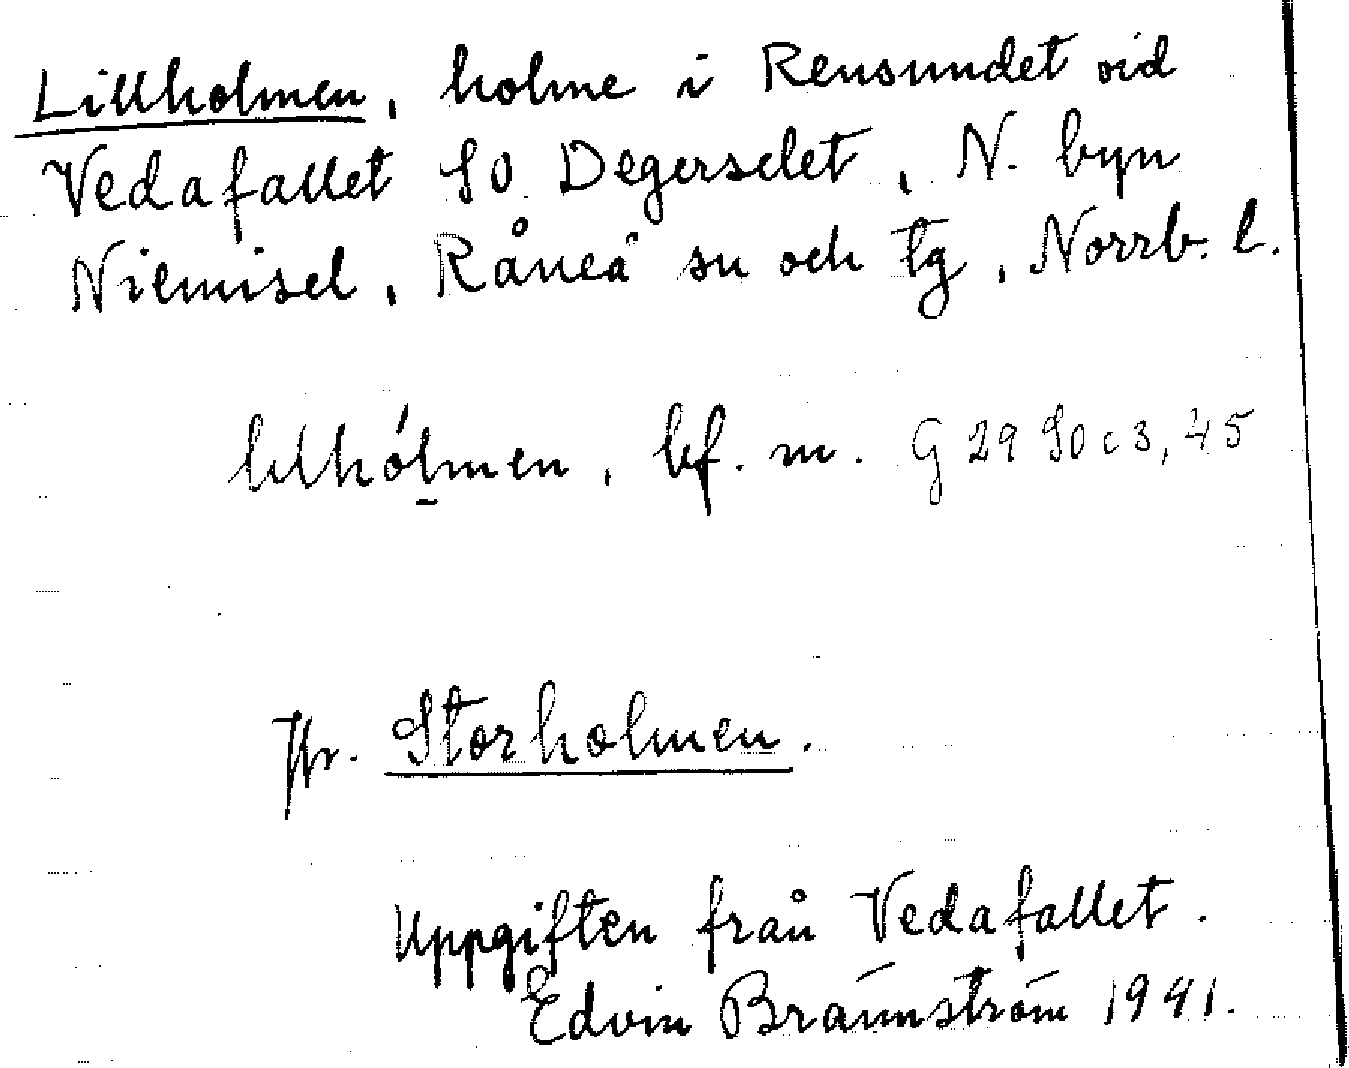 Lillholmen, holme i Rensundet vid
Vedafallet SO Degerselet, N. byn
Niemisel, Råneå sn och tg, Norrb. l.
lılhólmen, bf. m. G 29 SO c 3, 45
Jfr. Storholmen.
Uppgiften från Vedafallet.
Edvin Brännström 1941.